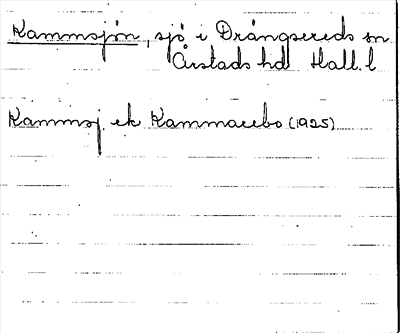 Kammsjön, sjö i Drängsereds sn
Årstads hd Hall. l
Kammsj. ek Kammarebo (1925)